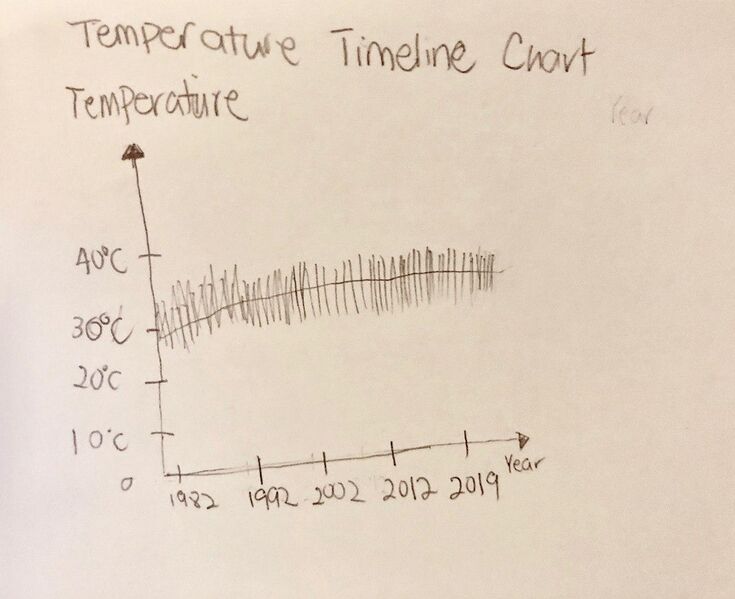 Temperature Timeline Chart
Temperature
Year
40°C
30°C
20°C
10°C
0
Year
1982 1992 2002 2012 2019